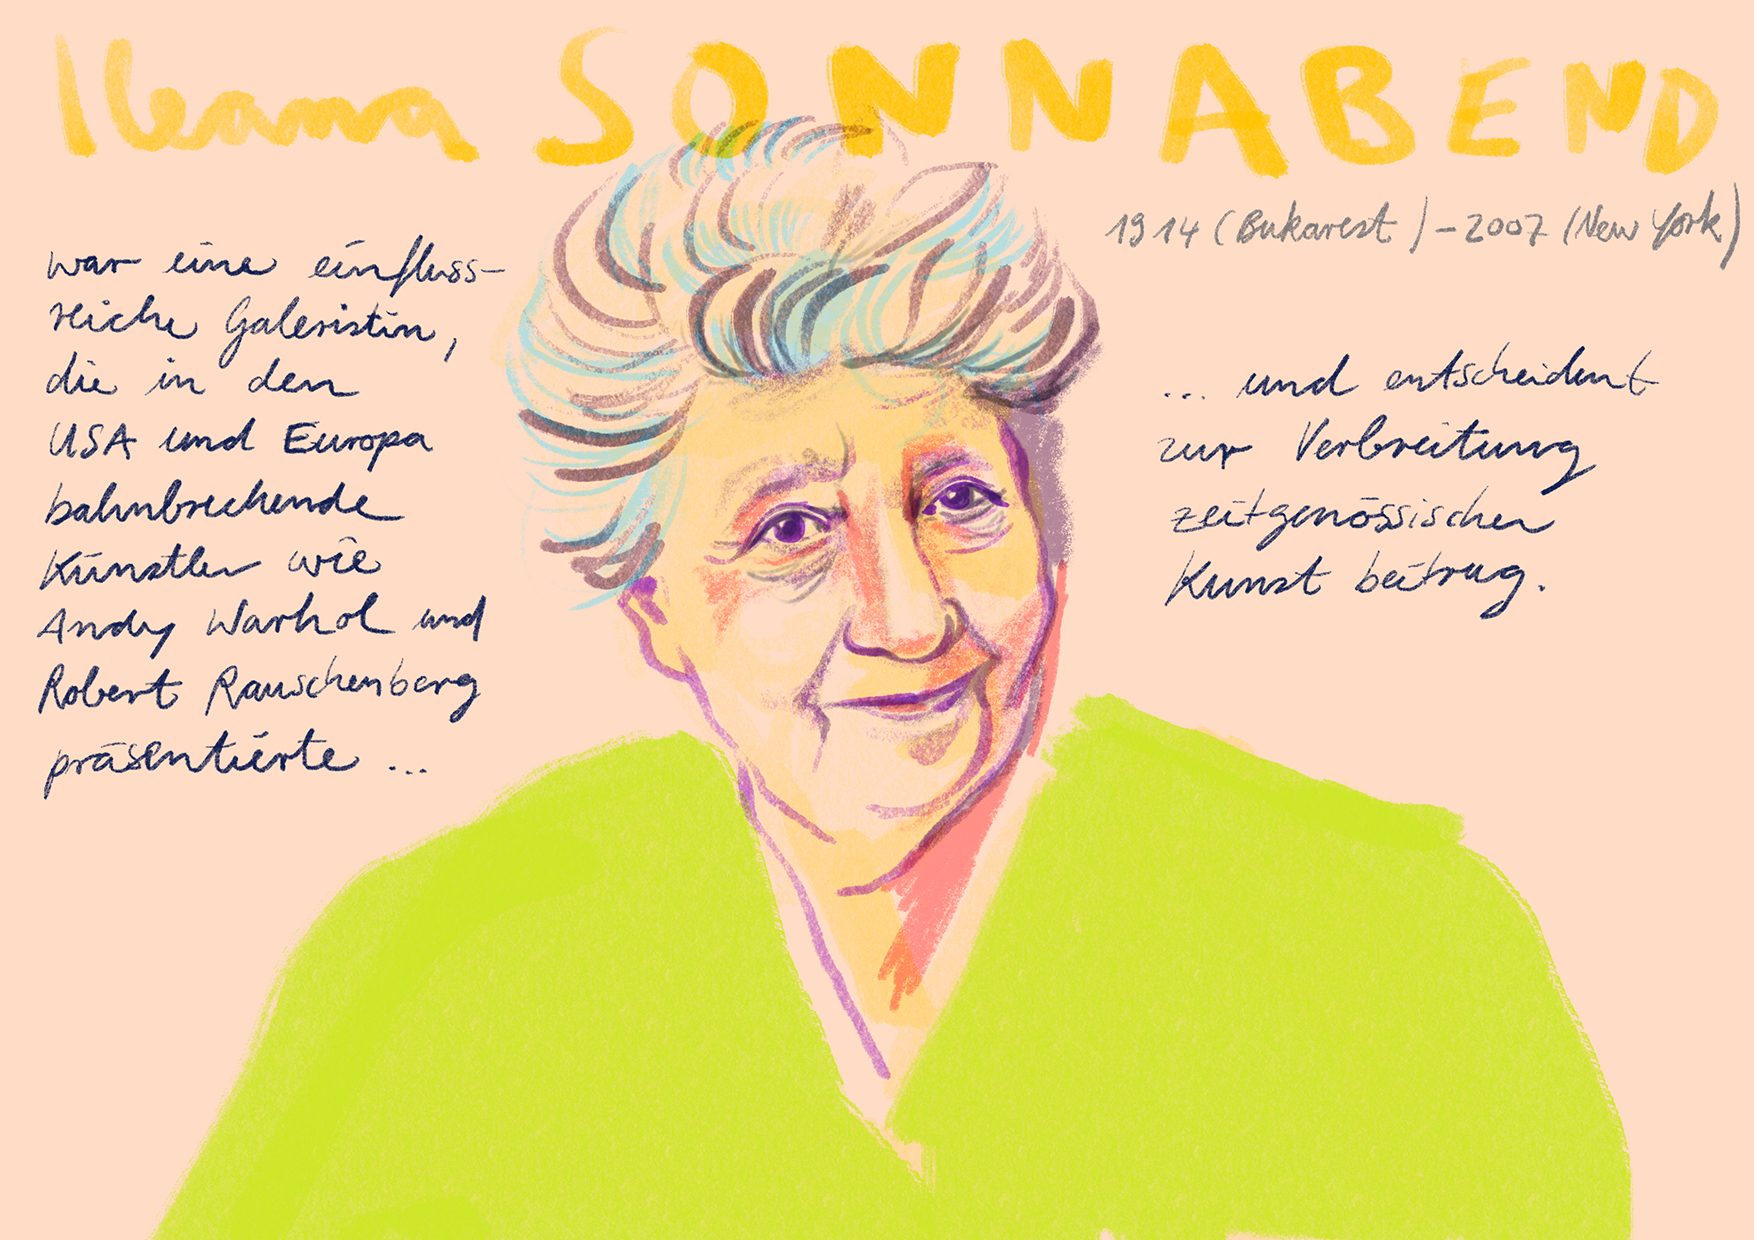 Ileana SONNABEND
1914 (Bukarest) – 2007 (New York)
war eine einfluss-
reiche Galeristin,
die in den
USA und Europa
bahnbrechende
Künstler wie
Andy Warhol und
Robert Rauschenberg
präsentierte ...
... und entscheident
zur Verbreitung
zeitgenössischer
Kunst beitrug.